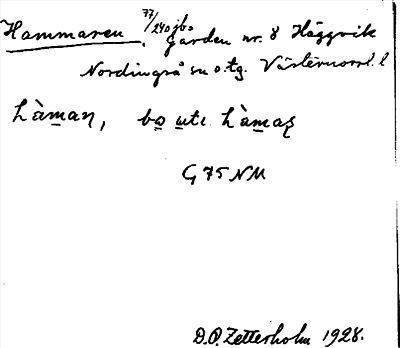 Hammaren, 77/240 jbo Gården nr. 8 Häggvik
Nordingrå sn o. tg. Västernorrl. l
hàman, bo ute hàmaŋ
G 75 NM
D.O. Zetterholm 1928.